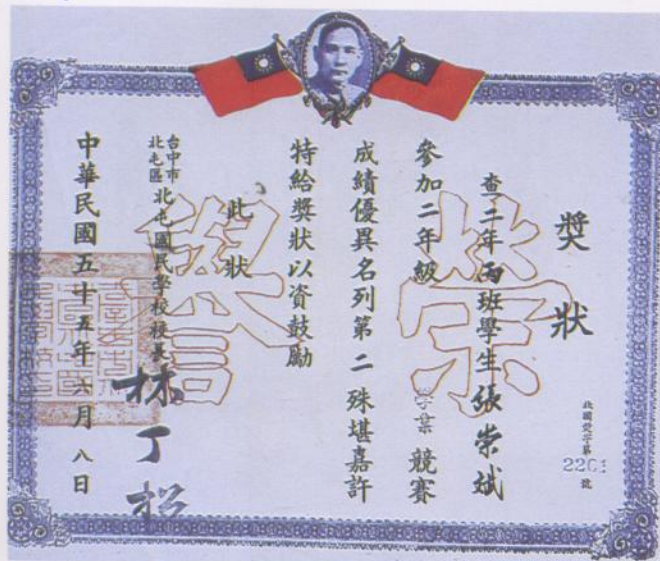 獎狀
北國獎字第2201號
查二年丙班學生張荣斌
參加二年級學業競賽
成績優異名列第二殊堪嘉許
特給獎狀以資鼓勵
此狀
台中市北屯區北屯國民學校校長林丁松
中華民國五十五年六月八日
榮譽